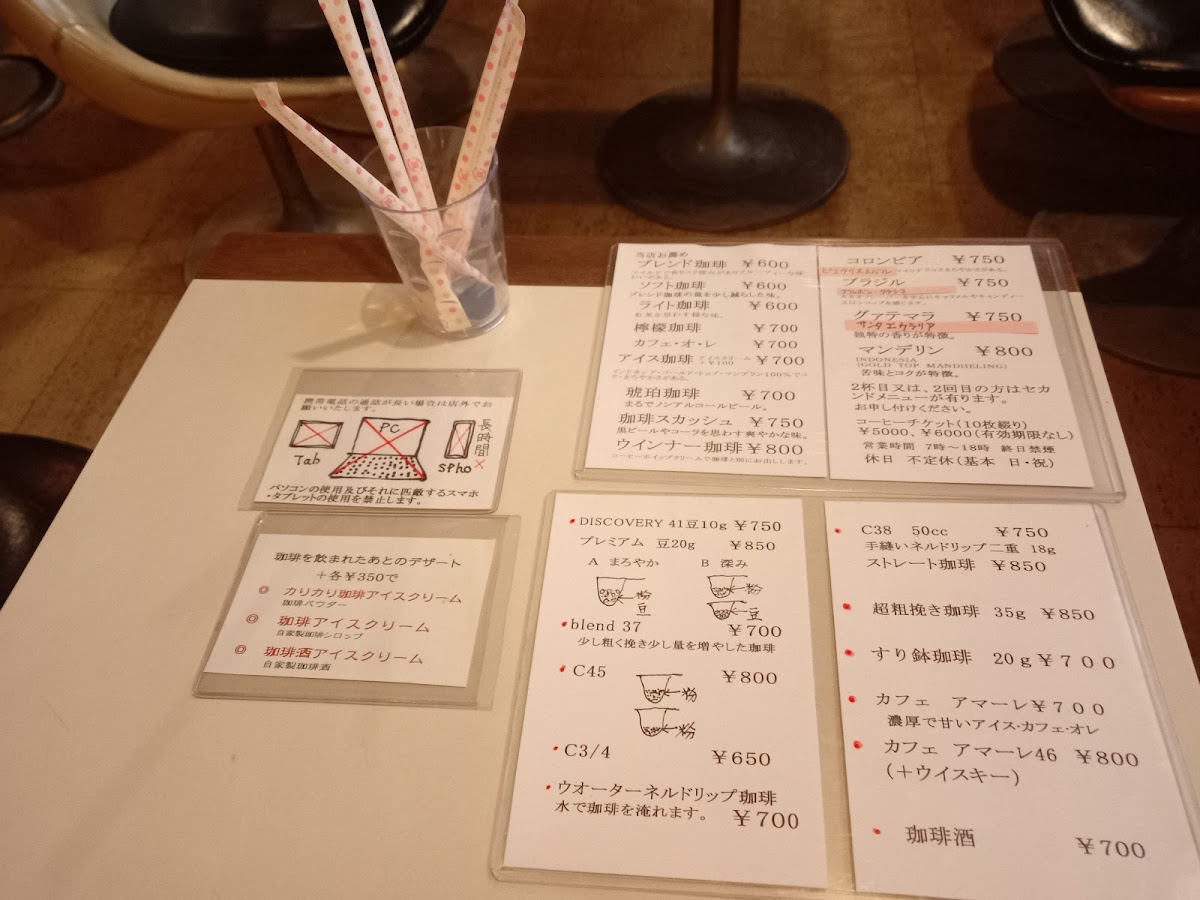 当店お薦め
ブレンド珈琲 ￥600
ソフト珈琲 ￥600
ブレンド珈琲の量を少し減らした味。
ライト珈琲 ￥600
紅茶を思わす様な味。
檸檬珈琲 ￥700
カフェ・オ・レ ￥700
アイス珈琲 ￥700
アイスクリーム
＋￥100
インドネシア・ゴールド・トップ・マンデリン100％でコク・まろやかさがある。
琥珀珈琲 ￥700
まるでノンアルコールビール。
珈琲スカッシュ ￥750
黒ビールやコーラを思わす爽やかな味。
ウインナー珈琲￥800
コーヒーホイップクリームで珈琲と別にお出しします。
コロンビア ￥750
ブラジル ￥750
グァテマラ ￥750
サンタエカラリア
独特の香りが特徴。
マンデリン ￥800
INDONESIA
(GOLD TOP MANDHELING)
苦味とコクが特徴。
2杯目又は、2回目の方はセカ
ンドメニューが有ります。
お申し付けください。
コーヒーチケット(10枚綴り)
￥5000、￥6000(有効期限なし)
営業時間 7時～18時 終日禁煙
休日 不定休(基本 日・祝)
携帯電話の通話が長い場合は店外でお
願いいたします。
Tab
PC
Spho
長時間
×
パソコンの使用及びそれに匹敵するスマホ
・タブレットの使用を禁止します。
珈琲を飲まれたあとのデザート
＋各￥350で
◎ カリカリ珈琲アイスクリーム
珈琲パウダー
◎ 珈琲アイスクリーム
自家製珈琲シロップ
◎ 珈琲酒アイスクリーム
自家製珈琲酒
DISCOVERY 41豆10g ￥750
プレミアム 豆20g ￥850
A まろやか B 深み
粉
豆
粉
豆
blend 37 ￥700
少し粗く挽き少し量を増やした珈琲
C45 ￥800
粉
粉
C3/4 ￥650
ウオーターネルドリップ珈琲
水で珈琲を淹れます。 ￥700
C38 50cc ￥750
手縫いネルドリップ二重 18g
ストレート珈琲 ￥850
超粗挽き珈琲 35g ￥850
すり鉢珈琲 20g￥700
カフェ アマーレ￥700
濃厚で甘いアイス・カフェ・オレ
カフェ アマーレ46 ￥800
(＋ウイスキー)
珈琲酒 ￥700